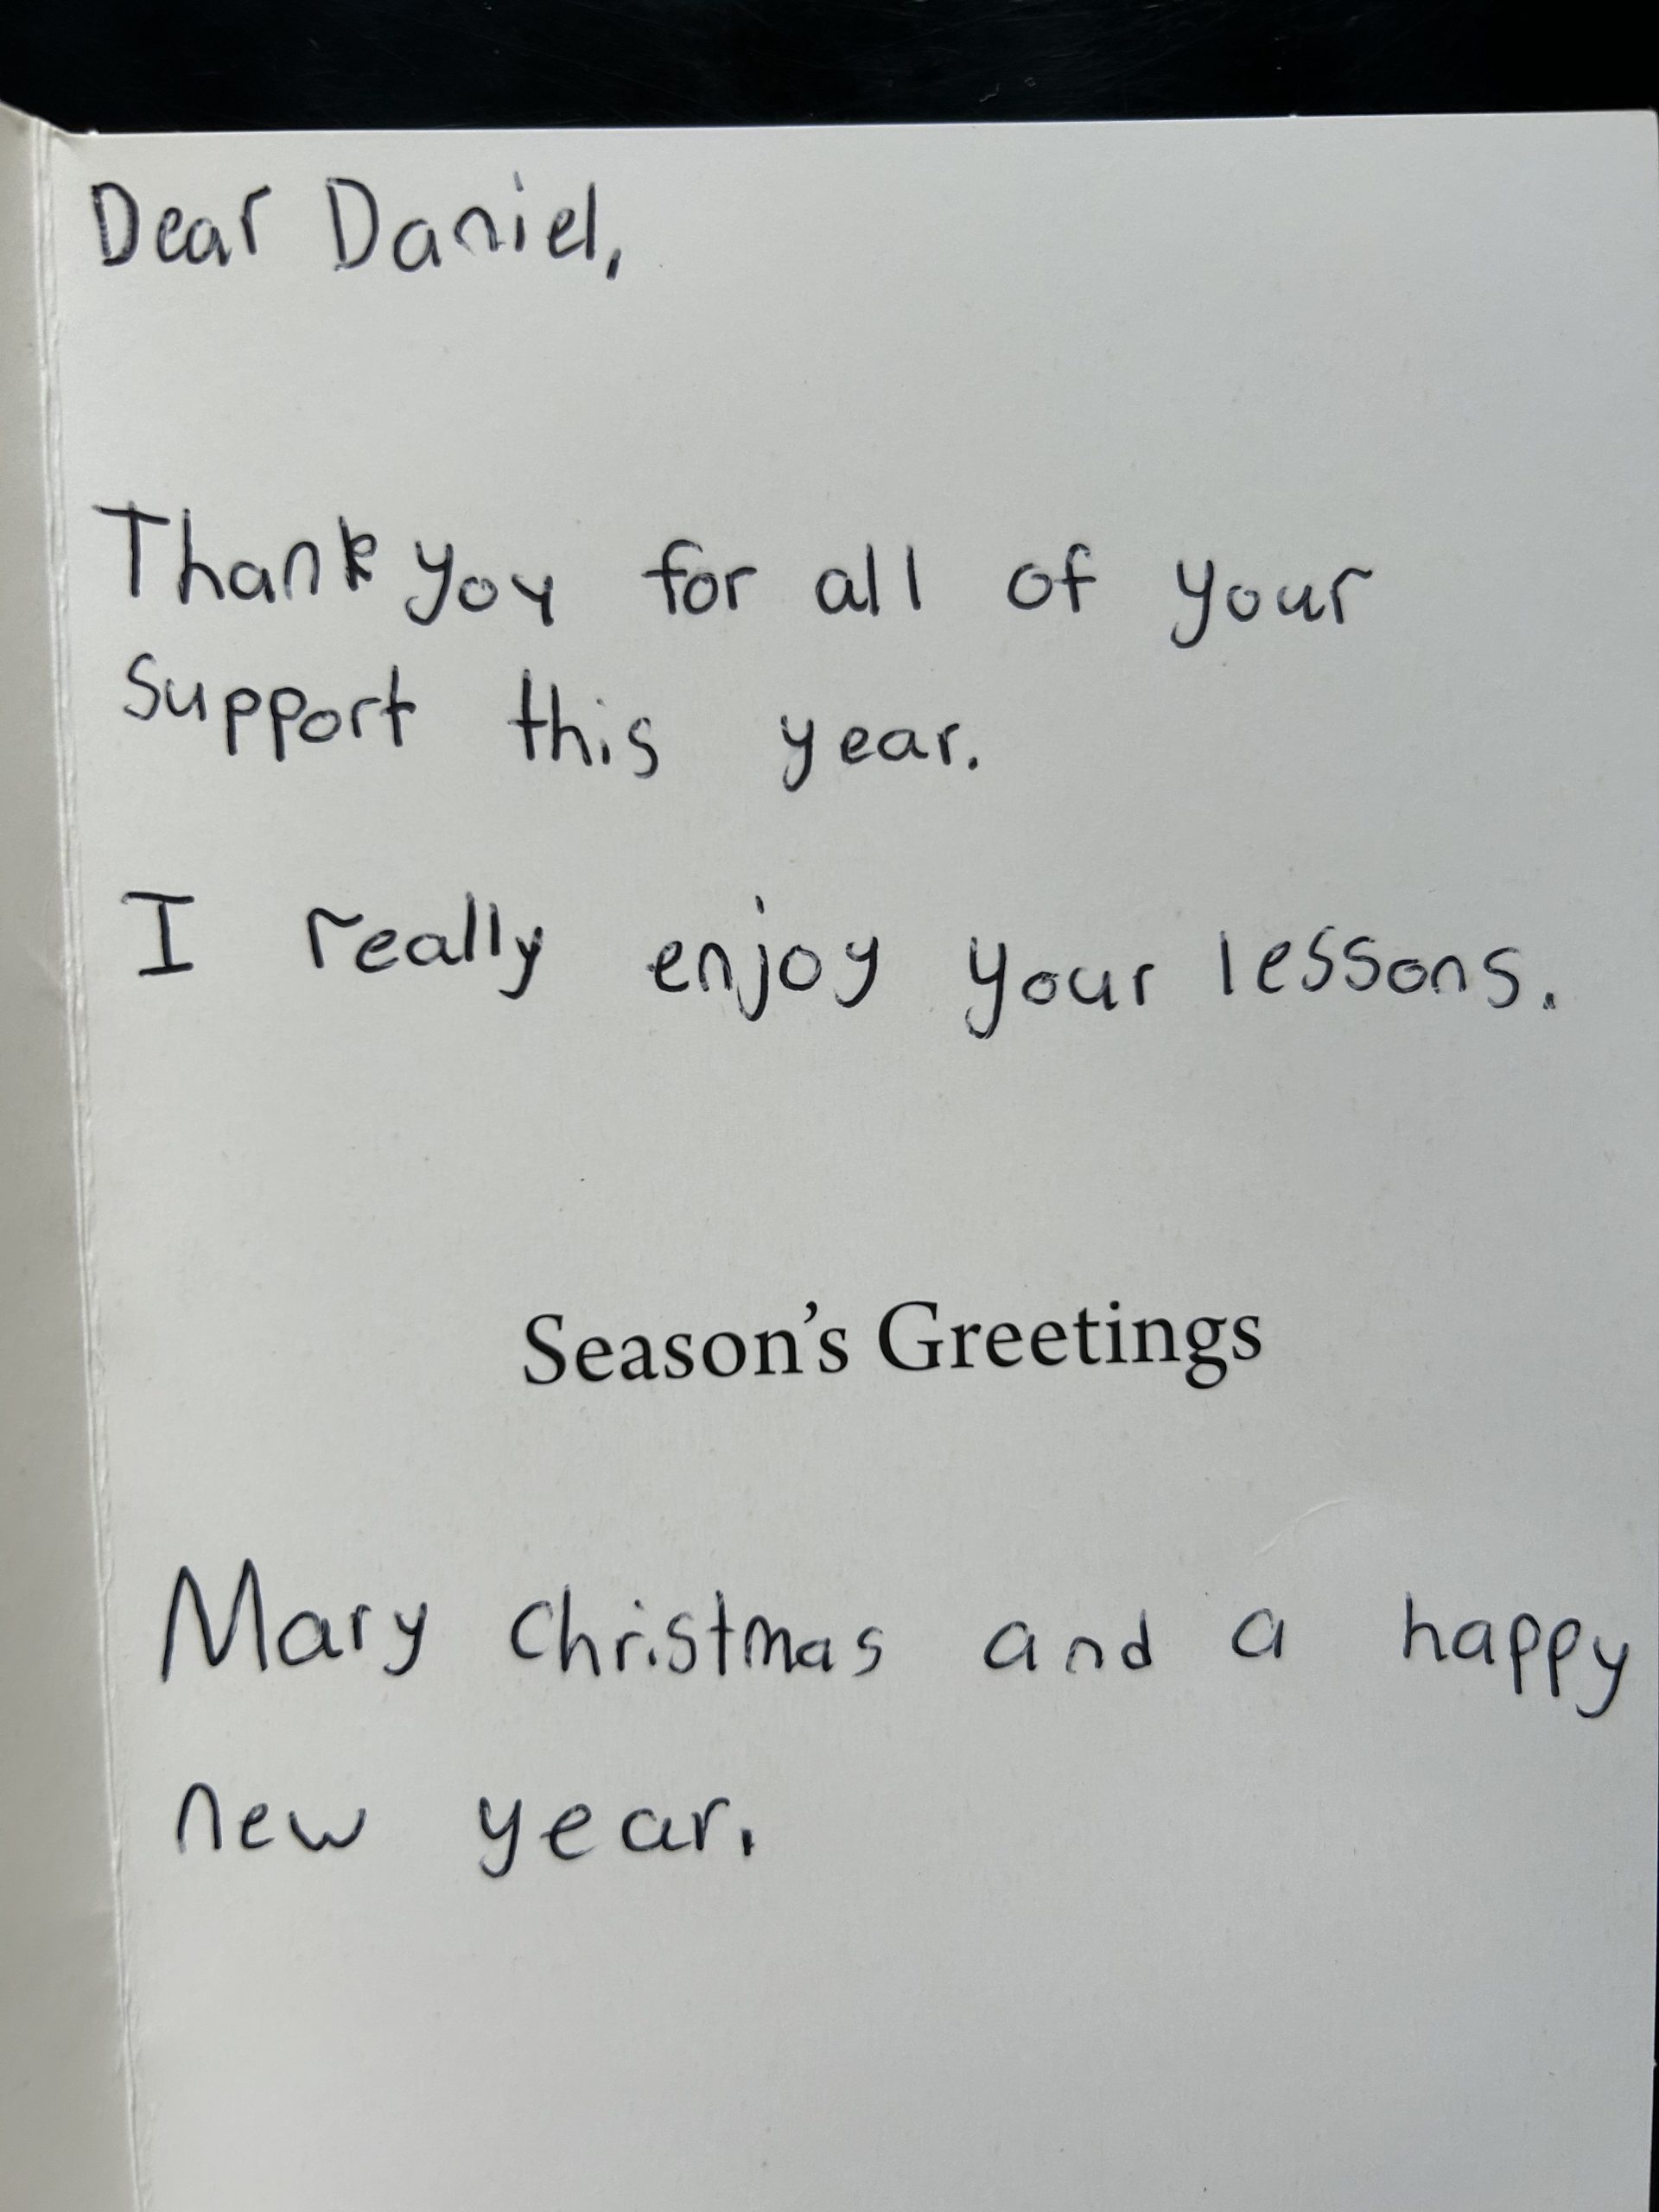 Dear Daniel,
Thank you for all of your
support this year.
I really enjoy your lessons.
Season's Greetings
Mary Christmas and a happy
new year.